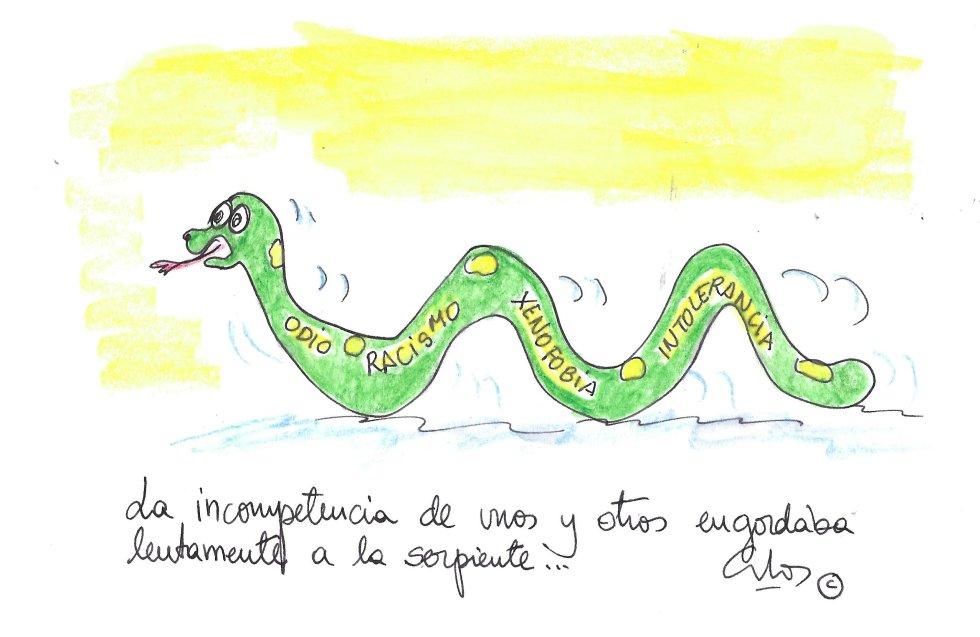 ODIO
RACISMO
XENOFOBIA
INTOLERANCIA
La incompetencia de unos y otros engordaba
lentamente a la serpiente...
©